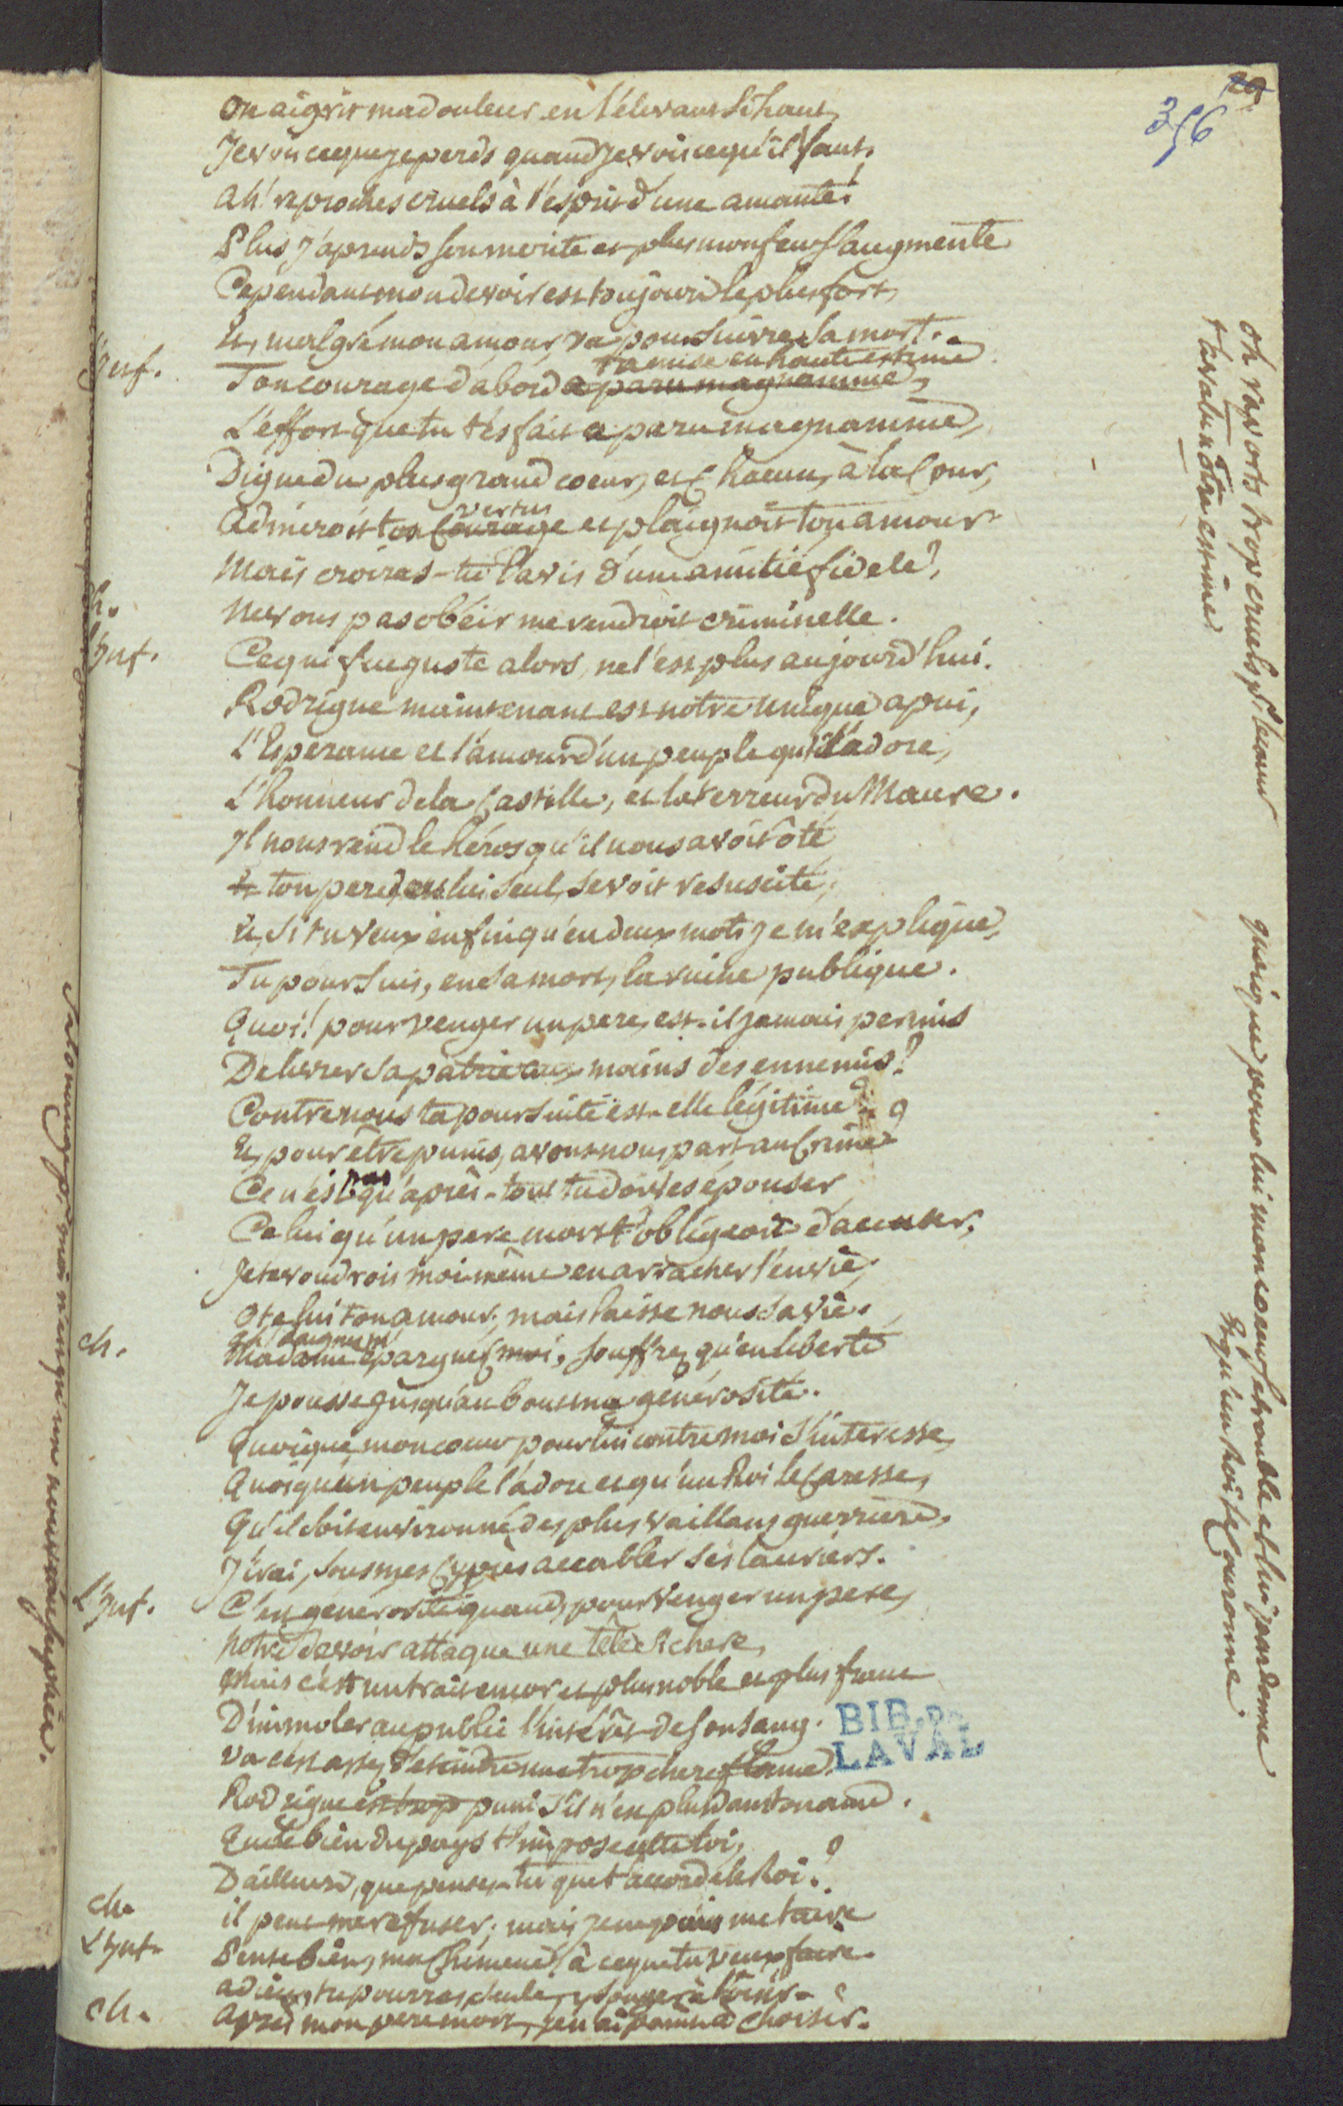 29
356
On aigrit ma douleur en l'élevant si haut,
Je vois ce que je perds quand je vois ce qu'il vaut.
ah! reproches cruels à l'esprit d'une amante!
Plus j'aprends son merite et plus mon feu s'augmente
Cependant mon devoir est toujours le plus fort,
Et, malgré mon amour, va poursuivre sa mort.
t'a mise en haute estime
L'inf. Ton courage d'abord a paru magnanime,
L'effort que tu t'es fait a paru magnanime,
Digne du plus grand coeur, et chacun, à la Cour,
vertus
Admiroit ton Courage et plaignoit ton amour
Mais croiras-tu l'avis d'une amitié fidele?
Ch. Ne vous pas obéir me rendroit criminelle.
L'inf. Ce qui fut juste alors, ne l'est plus aujourd'hui.
Rodrigue maintenant est notre unique apui,
L'Esperance et l'amour d'un peuple qui l'adore,
L'honneur de la Castille, et la terreur du Maure.
Il nous rend le héros qu'il nous avoit ôté
Et ton pere, en lui seul, se voit resuscité;
Et, si tu veux enfin qu'en deux mots je m'explique,
Tu poursuis, en sa mort, la ruine publique.
Quoi! pour venger un pere, est-il jamais permis
De livrer sa patrie aux mains des ennemis?
Contre nous ta poursuite est-elle légitime?
Et, pour être punis, avons-nous part au Crime?
pas
Ce n'est qu'après-tout tu doives épouser
Celui qu'un pere mort t'obligeoit d'accuser,
Je te voudrois moi même en arracher l'envie;
Ote lui ton amour, mais laisse nous sa vie.
Ch. Madame épargnez moi, souffrez qu'en liberté
Je pousse jusqu'au bout ma générosité.
Quoique mon coeur pour lui contre moi s'interesse,
Quoiqu'un peuple l'adore et qu'un Roi le Caresse,
Qu'il soit environné des plus vaillans guerriers,
J'irai, sous mes Cyprès accabler ses lauriers.
L'inf. C'est générosité quand, pour venger un pere,
Notre devoir attaque une tête si chere,
Mais c'est un trait encor et plus noble et plus franc
D'immoler au public l'interêt de son sang.
Va c'est assez d'éteindre une trop chere flame
Rodrigue est trop puni s'il n'est plus dans ton ame.
Que le bien du pays t'impose cette loi;
D'ailleurs, que penses-tu que t'accorde le Roi?
Ch. il peut me refuser; mais je ne puis me taire
L'inf. Pense bien, ma Chimene, à ce que tu veux faire.
adieu, tu pourras seule y songer à loisir.
Ch. Après mon pere mort, je n'ai point à choisir.
oh raports trop cruels pr. le coeur
quoique pour lui mon coeur se trouble et lui pardonne
Et qu'un Roi le couronne
BIB. DE
LAVAL